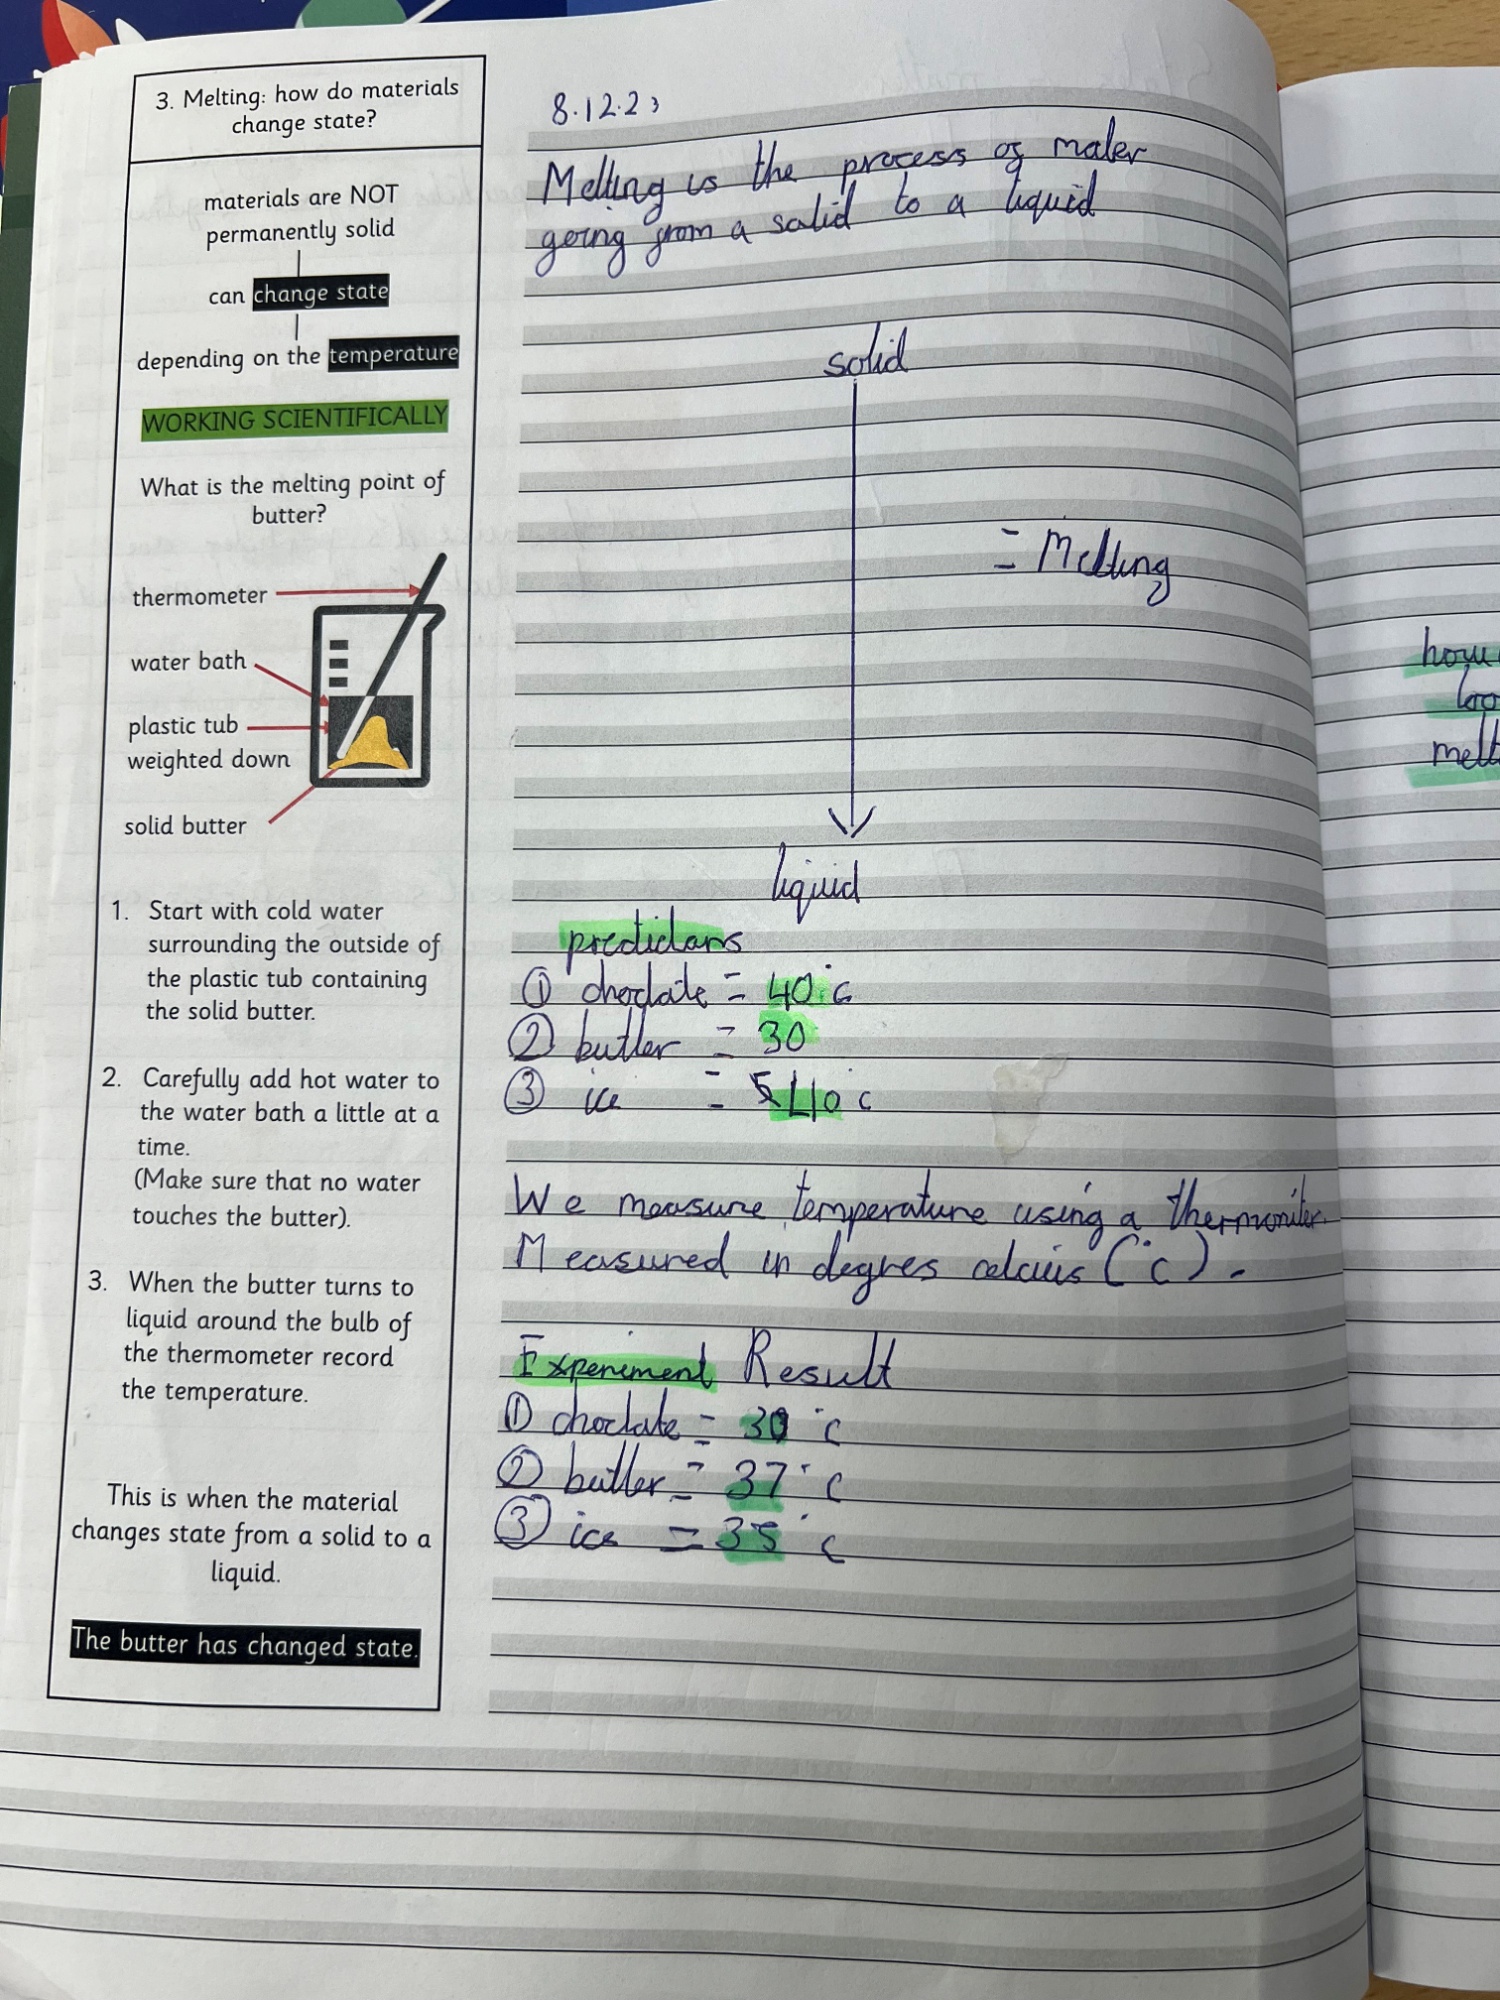 3. Melting: how do materials
change state?
materials are NOT
permanently solid
can change state
depending on the temperature
WORKING SCIENTIFICALLY
What is the melting point of
butter?
thermometer
water bath
plastic tub
weighted down
solid butter
1. Start with cold water
surrounding the outside of
the plastic tub containing
the solid butter.
2. Carefully add hot water to
the water bath a little at a
time.
(Make sure that no water
touches the butter).
3. When the butter turns to
liquid around the bulb of
the thermometer record
the temperature.
This is when the material
changes state from a solid to a
liquid.
The butter has changed state.
8.12.23
Melting is the process of mater
going from a salid to a liquid
solid
= Melting
liquid
predictans
① choclate = 40°c
② butter = 30
③ ice = 40c
We measure temperature using a thermoniter.
Measured in degres celcius (°c).
Experiment Result
① choclate = 30°c
② butter = 37°c
③ ice = 35°c
how
loo
melt